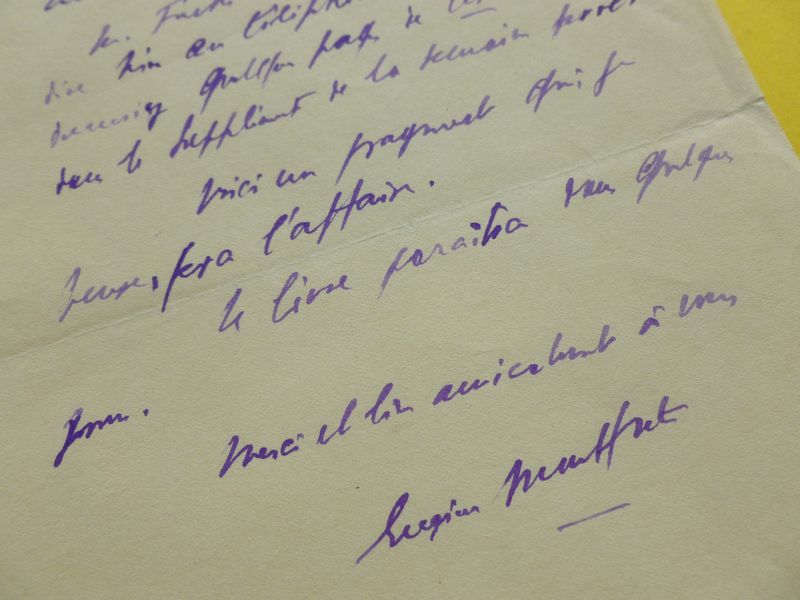 M.
dire bien au téléphone
quelques pages de
dans le supplément de la semaine
Voici un fragment qui, je
pense, fera l'affaire.
Le livre paraîtra dans quelques
jours.
Merci et bien amicalement à vous
Eugène Montfort